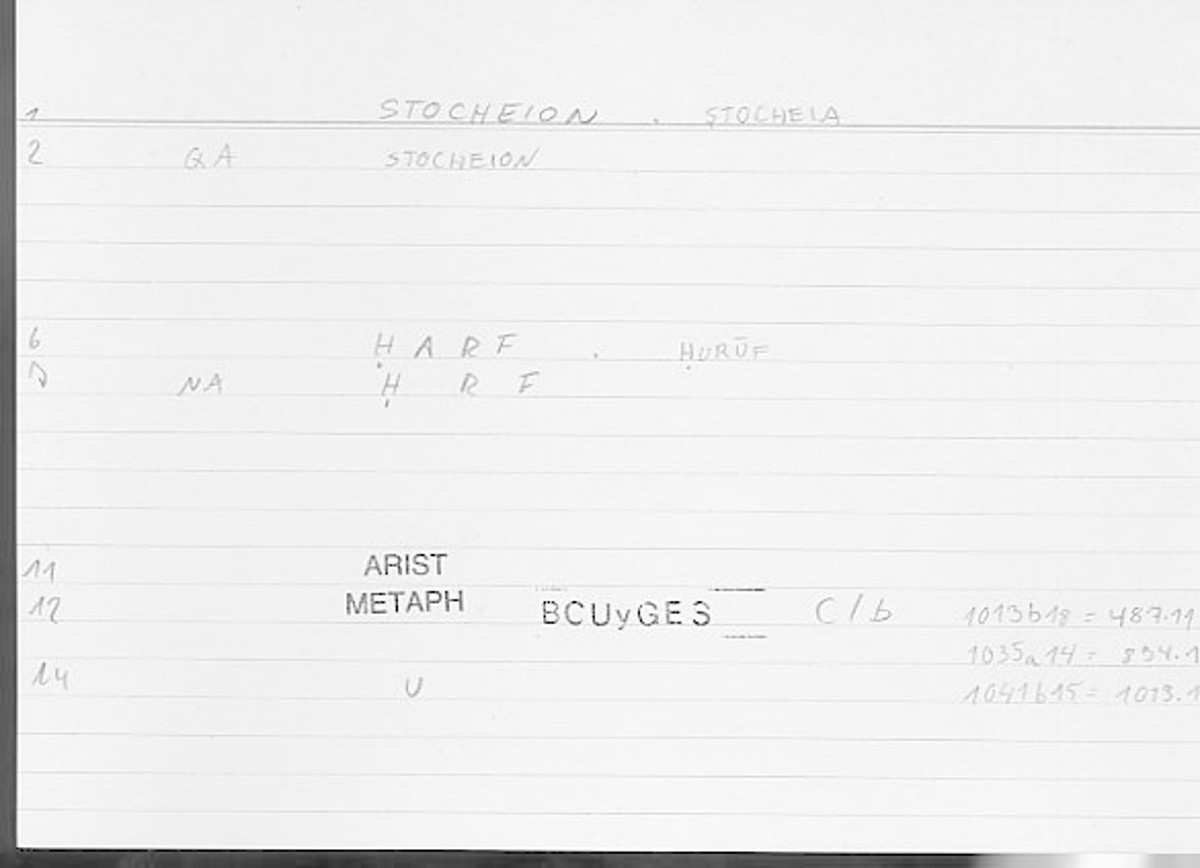 1 STOCHEION . STOCHEIA
2 QA STOCHEION
6 ḤARF . ḤURŪF
NA Ḥ R F
11 ARIST
12 METAPH BCUyGES C/b 1013b18 = 487.11
1035a14 = 894.1
14 U 1041b15 = 1013.1